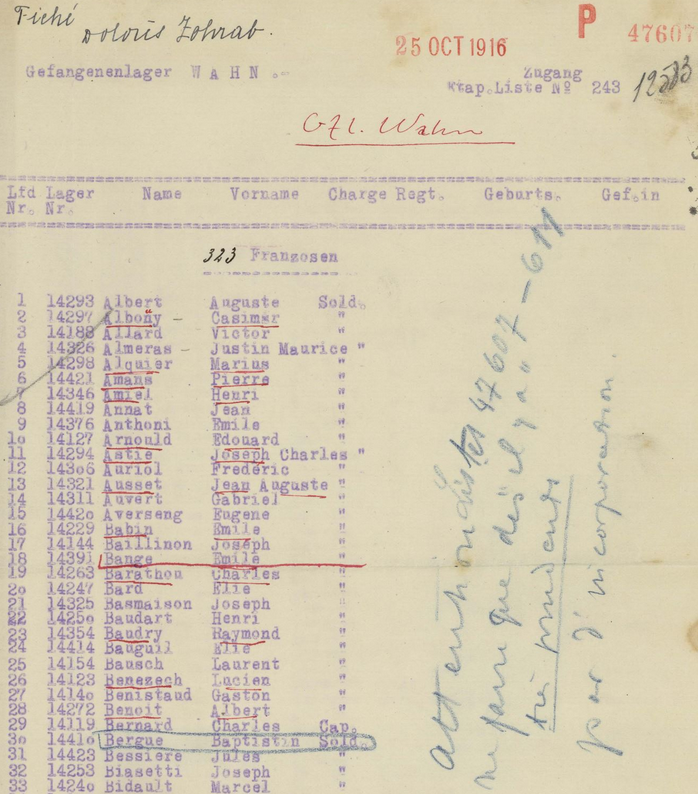 Fiché
Dolovis Zohrab.
25 OCT 1916
P 47607
Gefangenenlager W A H N .=
Zugang
Etap.Liste Nº 243
Gfl. Wahn
Lfd Lager Name Vorname Charge Regt. Geburts. Gef.in
Nr. Nr.
323 Franzosen
1 14293 Albert Auguste Sold.
2 14297 Albony - Casimir "
3 14188 Allard Victor "
4 14326 Almeras - Justin Maurice "
5 14298 Alquier Marius "
6 14421 Amans Pierre "
7 14346 Amiel Henri "
8 14419 Annat Jean "
9 14376 Anthoni Emile "
10 14127 Arnould Edouard "
11 14294 Astie Joseph Charles "
12 14306 Auriol Frederic "
13 14321 Ausset Jean Auguste "
14 14311 Auvert Gabriel "
15 14420 Averseng Eugene "
16 14229 Babin Emile "
17 14144 Baillinon Joseph "
18 14391 Bange Emile "
19 14263 Barathon Charles "
20 14247 Bard Elie "
21 14325 Basmaison Joseph "
22 14250 Baudart Henri "
23 14354 Baudry Raymond "
24 14414 Bauguil Elie "
25 14154 Bausch Laurent "
26 14123 Benezech Lucien "
27 14140 Benistaud Gaston "
28 14272 Benoit Albert "
29 14119 Bernard Charles Cap.
30 14410 Bergue Baptistin Sold.
31 14423 Bessiere Jules "
32 14253 Biasetti Joseph "
33 14240 Bidault Marcel "
Attention Listes 47607 - 611
ne
que
il y a
pas d'incorporation.